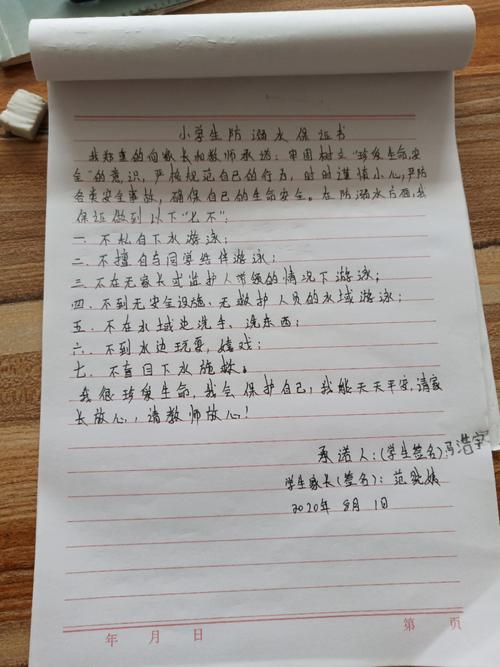 小学生防溺水保证书
我郑重的向家长和教师承诺：牢固树立"珍爱生命，安
全"的意识，严格规范自己的行为，时时谨慎小心，严防
各类安全事故，确保自己的生命安全。在防溺水方面，我
保证做到以下"七不"：
一．不私自下水游泳；
二．不擅自与同学结伴游泳；
三．不在无家长或监护人带领的情况下游泳；
四．不到无安全设施、无救护人员的水域游泳；
五．不在水域边洗手、洗东西；
六．不到水边玩耍，嬉戏；
七．不盲目下水施救。
我很珍爱生命，我会保护自己，我能天天平安，请家
长放心，请教师放心！
承诺人：(学生签名)冯浩宇
学生家长(签名)：范
2020年 8月 1日
年 月 日 第 页